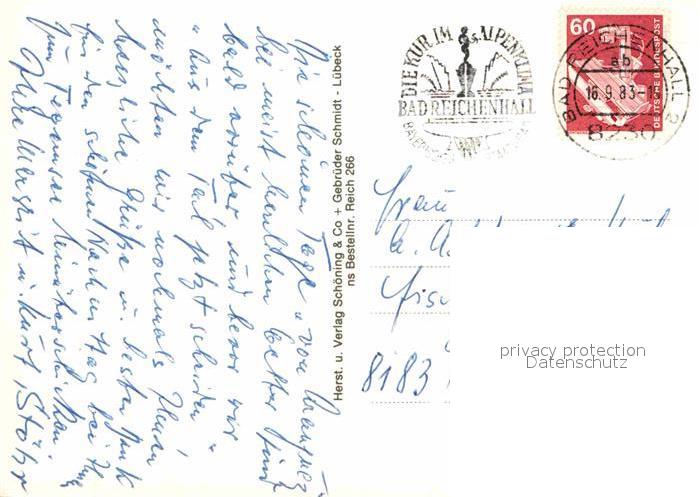 Die schönen Tage von
bei meist herrlichem Wetter sind
bald vorüber und bevor wir
aus dem Tal jetzt scheiden
möchten wir nochmals Ihnen
herzliche Grüße u. besten Dank
für den schönen Nachmittag bei Ihnen
zum Tegernsee
Ihre Margrit u. Kurt Stöhr
Herst. u. Verlag Schöning & Co + Gebrüder Schmidt - Lübeck
ns Bestellnr. Reich 266
DIE KUR IM ALPENKLIMA
BAD REICHENHALL
60
DEUTSCHE BUNDESPOST
BAD REICHENHALL 2
ab
16.9.83-18
8230
Frau
8183
privacy protection
Datenschutz